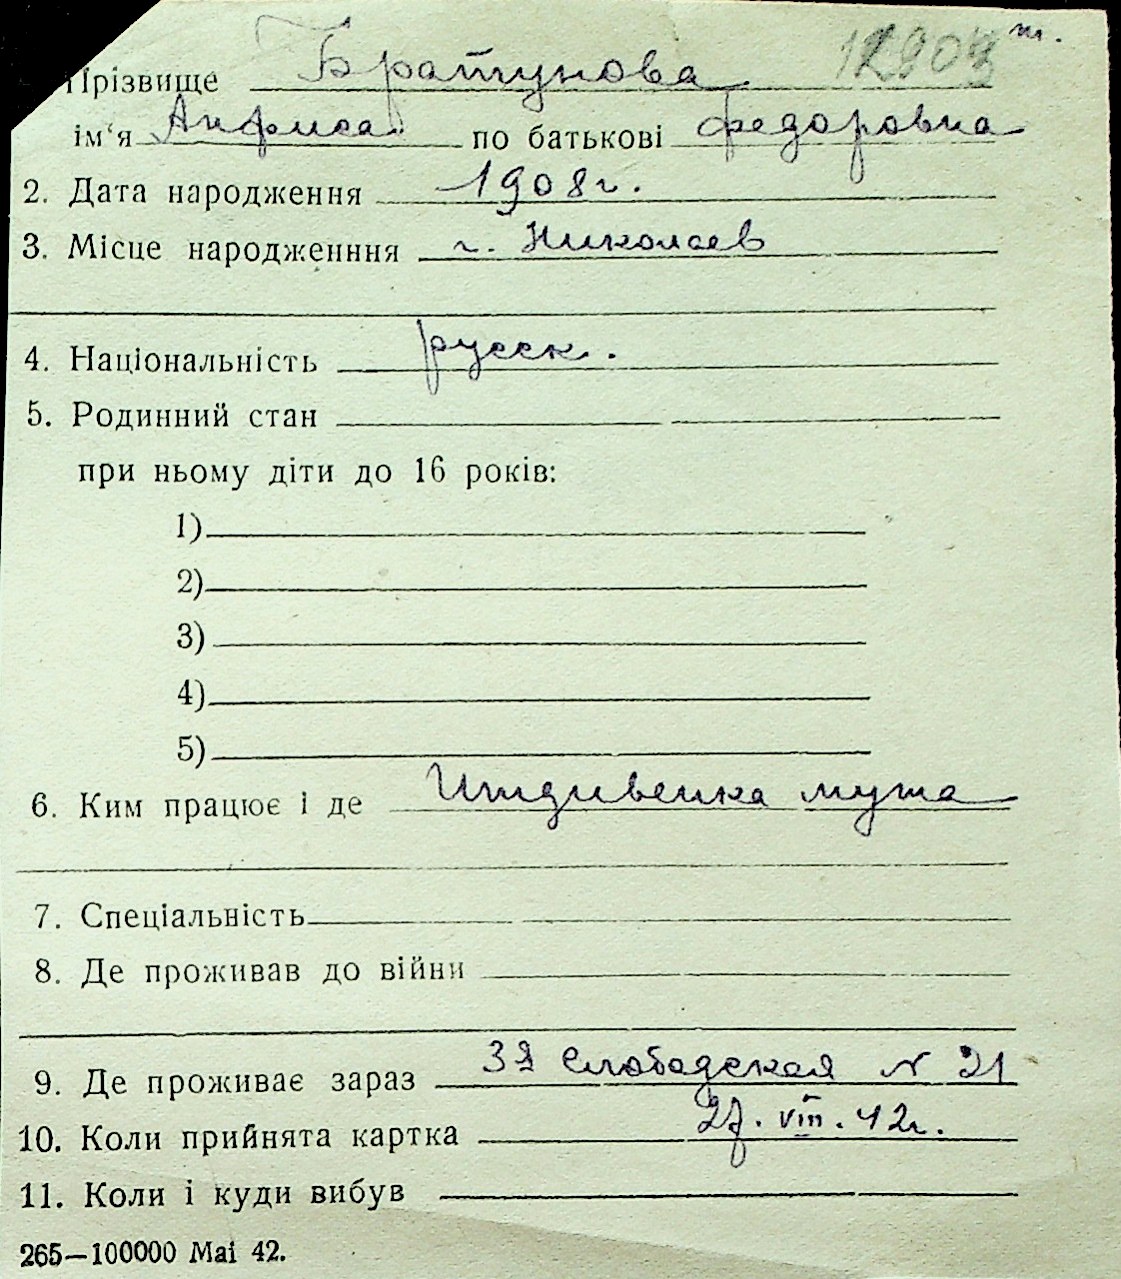 т.
Прізвище Братунова
ім‘я Анфиса по батькові Федоровна
2. Дата народження 1908 г.
3. Місце народженння г. Николаев
4. Національність русск.
5. Родинний стан
при ньому діти до 16 років:
1)
2)
3)
4)
5)
6. Ким працює і де Иждивенка мужа
7. Спеціальність
8. Де проживав до війни
9. Де проживає зараз 3я Слободская N 21
10. Коли прийнята картка 27. VIII. 42 г.
11. Коли і куди вибув
265—100000 Mai 42.